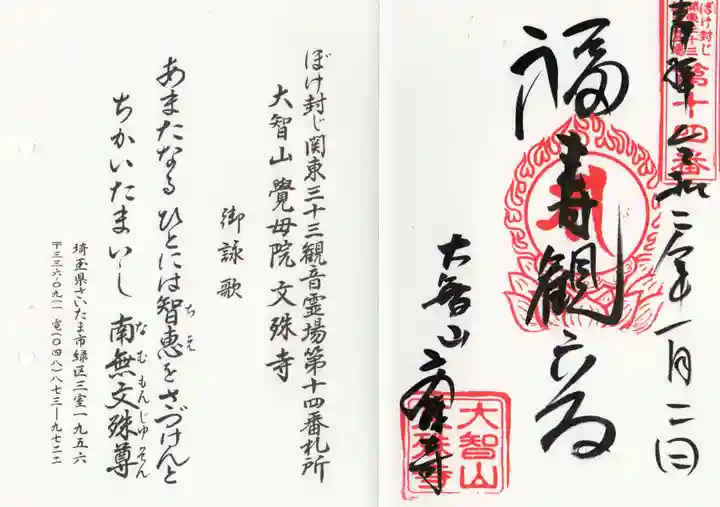 ぼけ封じ
関東三十三
第十四番
奉拝 令和二年一月二日
福寿観音
大智山 文殊寺
大智山
文殊寺
ぼけ封じ関東三十三観音霊場第十四番札所
大智山 覺母院 文殊寺
御詠歌
あまたなる ひとには智恵をさづけんと
ちえ
ちかいたまいし 南無文殊尊
なむもんじゅそん
埼玉県さいたま市緑区三室一九五六
〒三三六-〇九一一 電(〇四八)八七三-九七二二